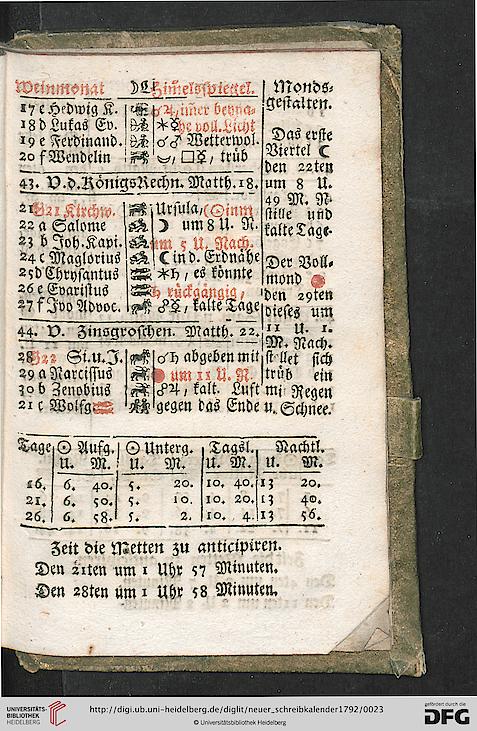 Weinmonat ☽L Him̃elsspiegel.
17 c Hedwig K. ☌ ♃, im̃er beyna-
18 d Lukas Ev. ⚹ ☿ he voll. Licht
19 e Ferdinand. ☌ ♂ Wetterwol.
20 f Wendelin □ ☿, trüb
43. V. d. Königs Rechn. Matth. 18.
21 G21 Kirchw. Ursula, (☉ inm
22 a Salome ☽ um 8 U. N.
23 b Joh. Kapi. um 5 U. Nach.
24 c Maglorius ☾ in d. Erdnähe
25 d Chrysantus ⚹ ♄, es könnte
26 e Evaristus ♄ rückgängig,
27 f Ivo Advoc. ☍ ☿, kalte Tage
44. V. Zinsgroschen. Matth. 22.
28 G22 Si. u. J. ☍ ♄ abgeben mit
29 a Narcissus um 11 U. N.
30 b Zenobius ☍ ♃, kalt. Luft
21 c Wolfg gegen das Ende u. Schnee.
Monds-
gestalten.
Das erste
Viertel ☾
den 22ten
um 8 U.
49 M. N.
stille und
kalte Tage.
Der Voll-
mond
den 29ten
dieses um
11 U. 1.
M. Nach.
stellet sich
trüb ein
mit Regen
Tage ☉ Aufg. ☉ Unterg. Tagsl. Nachtl.
U. M. U. M. U. M. U. M.
16. 6. 40. 5. 20. 10. 40. 13 20.
21. 6. 50. 5. 10. 10. 20. 13 40.
26. 6. 58. 5. 2. 10. 4. 13 56.
Zeit die Metten zu anticipiren.
Den 21ten um 1 Uhr 57 Minuten.
Den 28ten um 1 Uhr 58 Minuten.
UNIVERSITÄTS-
BIBLIOTHEK
HEIDELBERG
http://digi.ub.uni-heidelberg.de/diglit/neuer_schreibkalender1792/0023
© Universitätsbibliothek Heidelberg
gefördert durch die
DFG